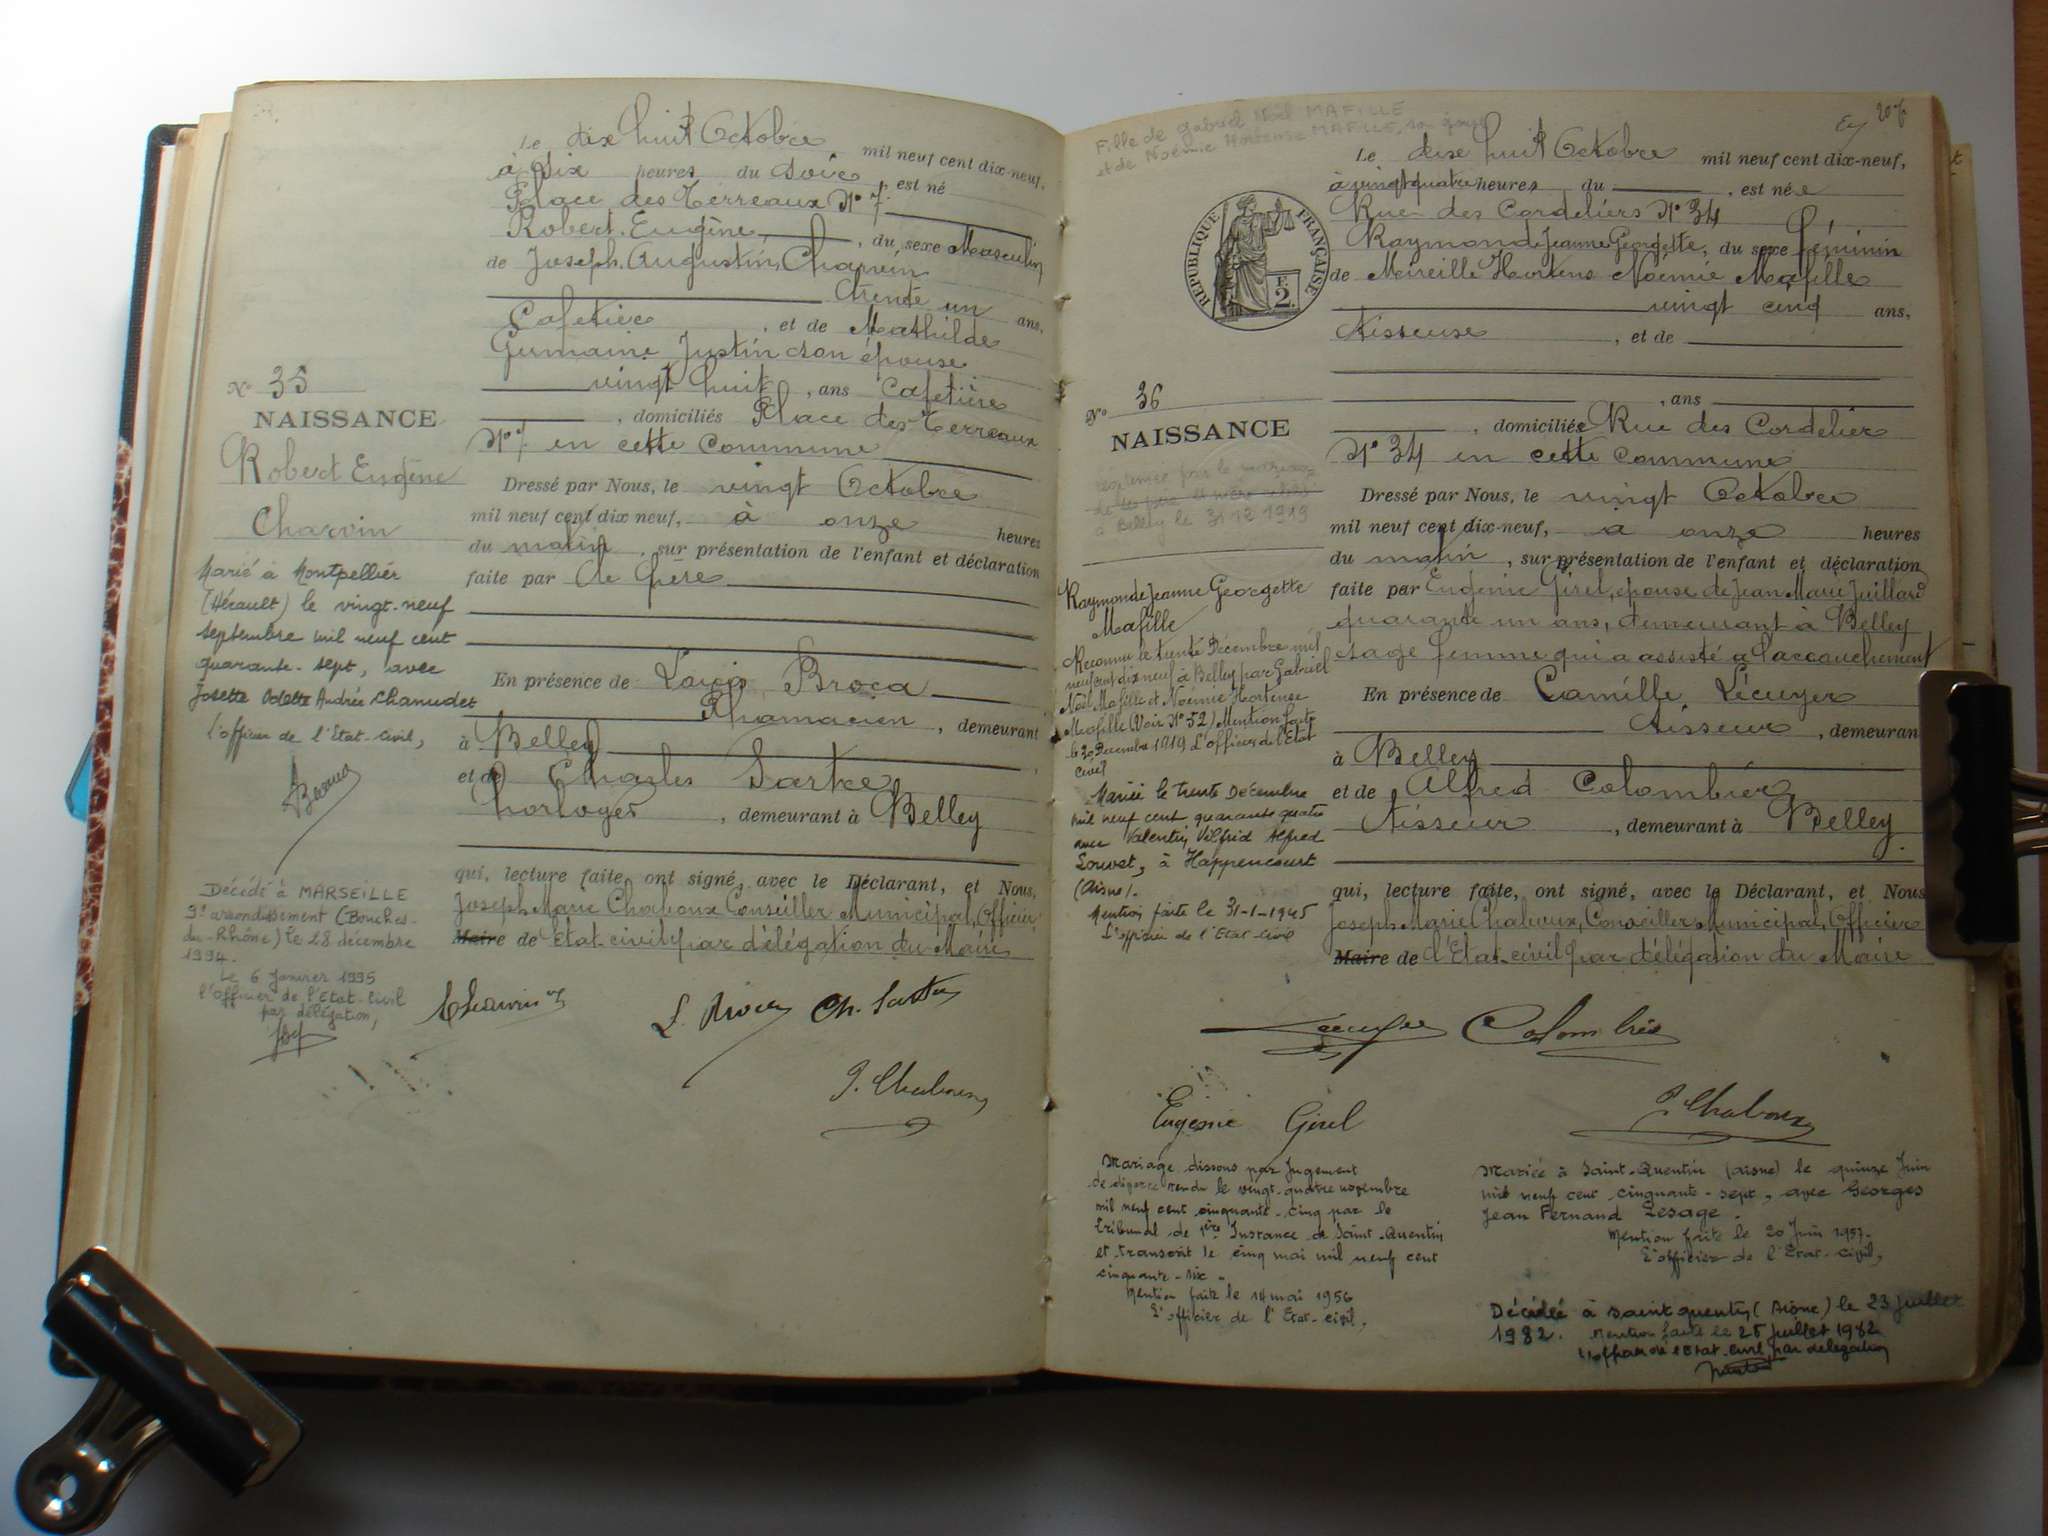 Le dix huit Octobre mil neuf cent dix-neuf,
à Six heures du Soir est né
Place des Terreaux N° 7
Robert Eugène, du sexe Masculin
de Joseph Augustin Charvin
trente un ans,
Cafetier, et de Mathilde
Germaine Justin son épouse
vingt huit, ans Cafetière
, domiciliés Place des Terreaux
N° 7 en cette commune
N° 35
NAISSANCE
Robert Eugène
Charvin
Dressé par Nous, le vingt Octobre
mil neuf cent dix neuf, à onze heures
du matin, sur présentation de l'enfant et déclaration
faite par le père
Marié à Montpellier
(Hérault) le vingt-neuf
septembre mil neuf cent
quarante-sept, avec
Josette Odette Andrée Chanudet
L'officier de l'Etat-Civil,
En présence de Louis Broca
Pharmacien, demeurant
à Belley
et de Charles Sartre
horloger, demeurant à Belley
qui, lecture faite, ont signé, avec le Déclarant, et Nous,
Joseph Marie Chaboux Conseiller Municipal, Officier
Maire de Etat-civil par délégation du Maire
Décédé à MARSEILLE
9e arrondissement (Bouches-
du-Rhône) le 28 décembre
1994.
Le 6 Janvier 1995
l'officier de l'Etat-Civil
par délégation,
Charvin
L. Broca Ch. Sartre
J. Chaboux
Fille de Gabriel Noël MAFILLE
et de Noémie Hortense MAFILLE, son épouse
20
Le dix huit Octobre mil neuf cent dix-neuf,
à vingt quatre heures du, est née
Rue des Cordeliers N° 34
RÉPUBLIQUE FRANÇAISE
F.
2.
Raymonde Jeanne Georgette, du sexe féminin
de Mireille Hortens Noémie Mafille
vingt cinq ans,
Tisseuse, et de
, ans
, domiciliée Rue des Cordelier
N° 34 en cette commune
N° 36
NAISSANCE
légitimée par le mariage
de ses père et mère célébré
à Belley le 31 12 1919
Dressé par Nous, le vingt Octobre
mil neuf cent dix-neuf, à onze heures
du matin, sur présentation de l'enfant et déclaration
faite par Eugénie Girel, épouse de Jean Marie Juillard
quarante un ans, demeurant à Belley
sage femme qui a assisté à l'accouchement
En présence de Camille Lécuyer
Tisseur, demeuran
à Belley
et de Alfred Colombier
Tisseur, demeurant à Belley
qui, lecture faite, ont signé, avec le Déclarant, et Nous
Joseph Marie Chaboux, Conseiller Municipal, Officier
Maire de l'Etat-civil par délégation du Maire
Raymonde Jeanne Georgette
Mafille
Reconnue le trente Décembre mil
neuf cent dix neuf à Belley par Gabriel
Noël Mafille et Noémie Hortense
Mafille (Voir N° 52) Mention faite
le 30 Décembre 1919 L'officier de l'Etat
civil
Mariée le trente Décembre
mil neuf cent quarante quatre
avec Valentin Vilfrid Alfred
Louvet, à Happencourt
(Aisne).
Mention faite le 31-1-1945
L'officier de l'Etat-Civil
Lécuyer Colombier
Eugénie Girel
J. Chaboux
Mariage dissous par Jugement
de divorce rendu le vingt-quatre novembre
mil neuf cent cinquante-cinq par le
tribunal de 1ère Instance de Saint-Quentin
et transcrit le cinq mai mil neuf cent
cinquante-six.
Mention faite le 14 mai 1956
L'officier de l'Etat-civil,
Mariée à Saint-Quentin (Aisne) le quinze Juin
mil neuf cent cinquante-sept, avec Georges
Jean Fernand Lesage.
Mention faite le 20 Juin 1957.
L'officier de l'Etat-civil,
Décédée à Saint Quentin (Aisne) le 23 juillet
1982. Mention faite le 26 juillet 1982
L'officier de l'Etat-Civil par délégation